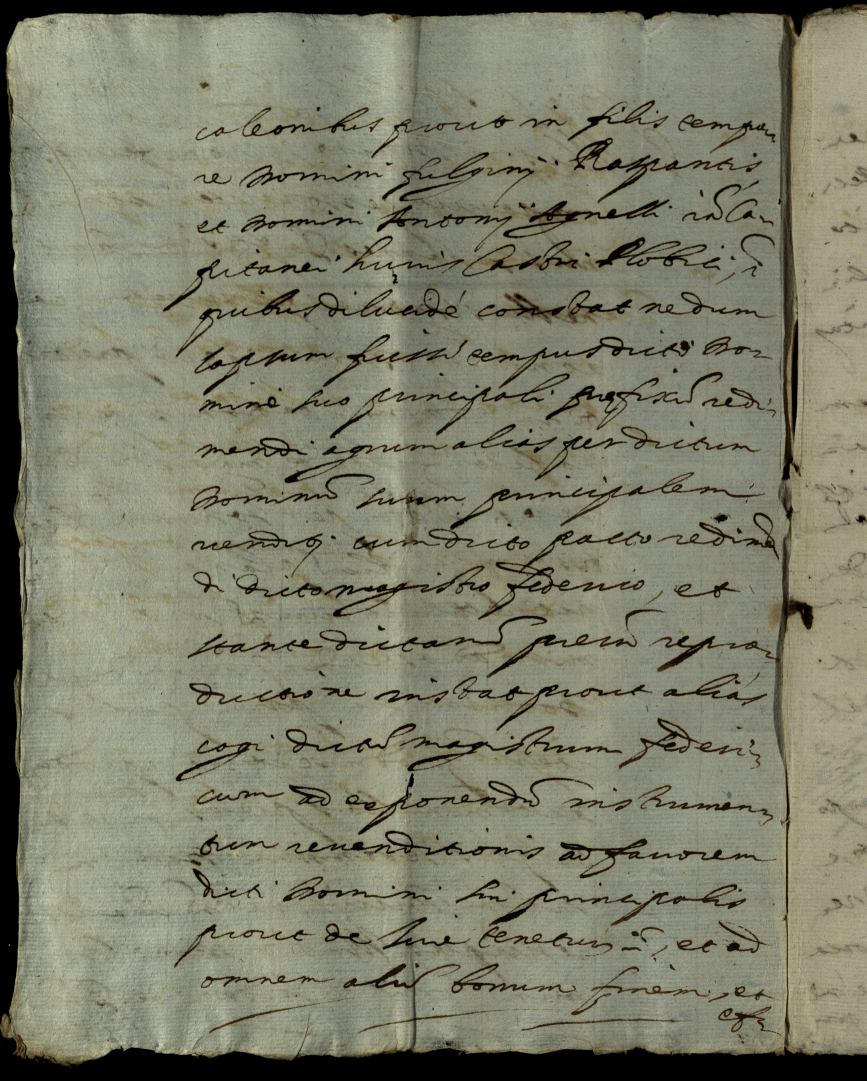 caleonibus prout in filis tempo-
re Domini fulginij Raspantis
et Domini Antonij Agnelli
pitanei huius Castri
quibus dilucidé constat nedum
lapsum fuisse tempus dicto Do-
mino suo principali prefixũ redi-
mendi agrum alias per dictum
Dominũ suum principalem
vendit. cum dicto pacto redimen
di dicto magistro federico, et
stante dictarũ reprao-
ductione instat prout aliàs
cogi dictũ magistrum federi-
cum ad exponendũ instrumen-
tum revenditionis ad favorem
dicti Domini sui principalis
prout de iure tenetur, et ad
omnem aliũ bonum finem, et